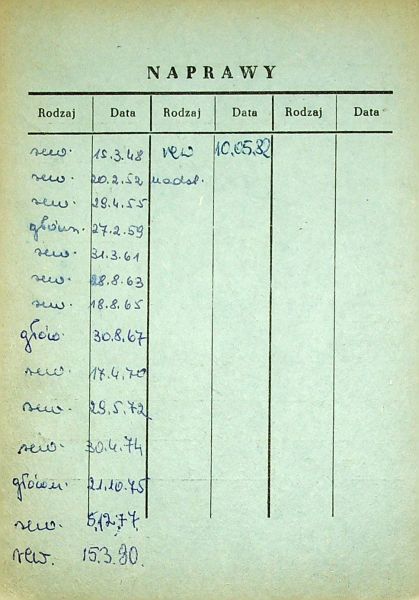 NAPRAWY
Rodzaj Data Rodzaj Data Rodzaj Data
rew. 15.3.48 rew 10.05.82
rew. 20.2.52 nadsł.
rew. 29.4.55
główn. 27.2.59
rew. 31.3.61
rew. 28.8.63
rew. 18.8.65
głów. 30.8.67
rew. 17.4.70
rew. 29.5.72
rew. 30.4.74
główn. 21.10.75
rew. 5.12.77
rew. 15.3.80.